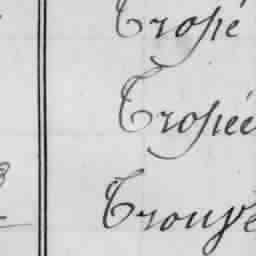 Tropé
Tropée
Trouve